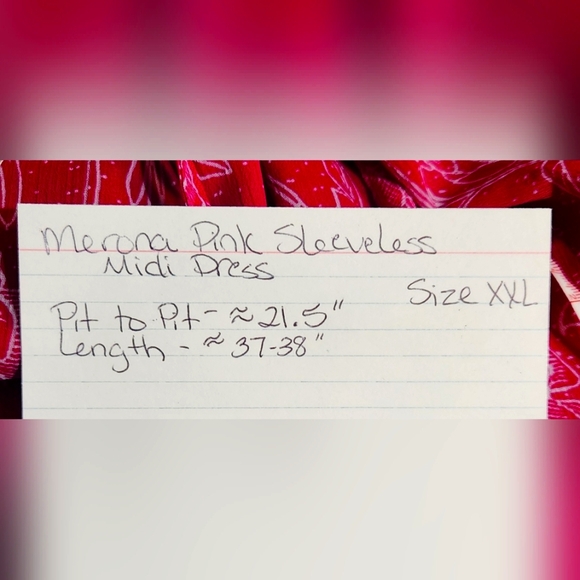 Merona Pink Sleeveless
Midi Dress
Size XXL
Pit to Pit - ≈ 21.5"
Length - ≈ 37-38"